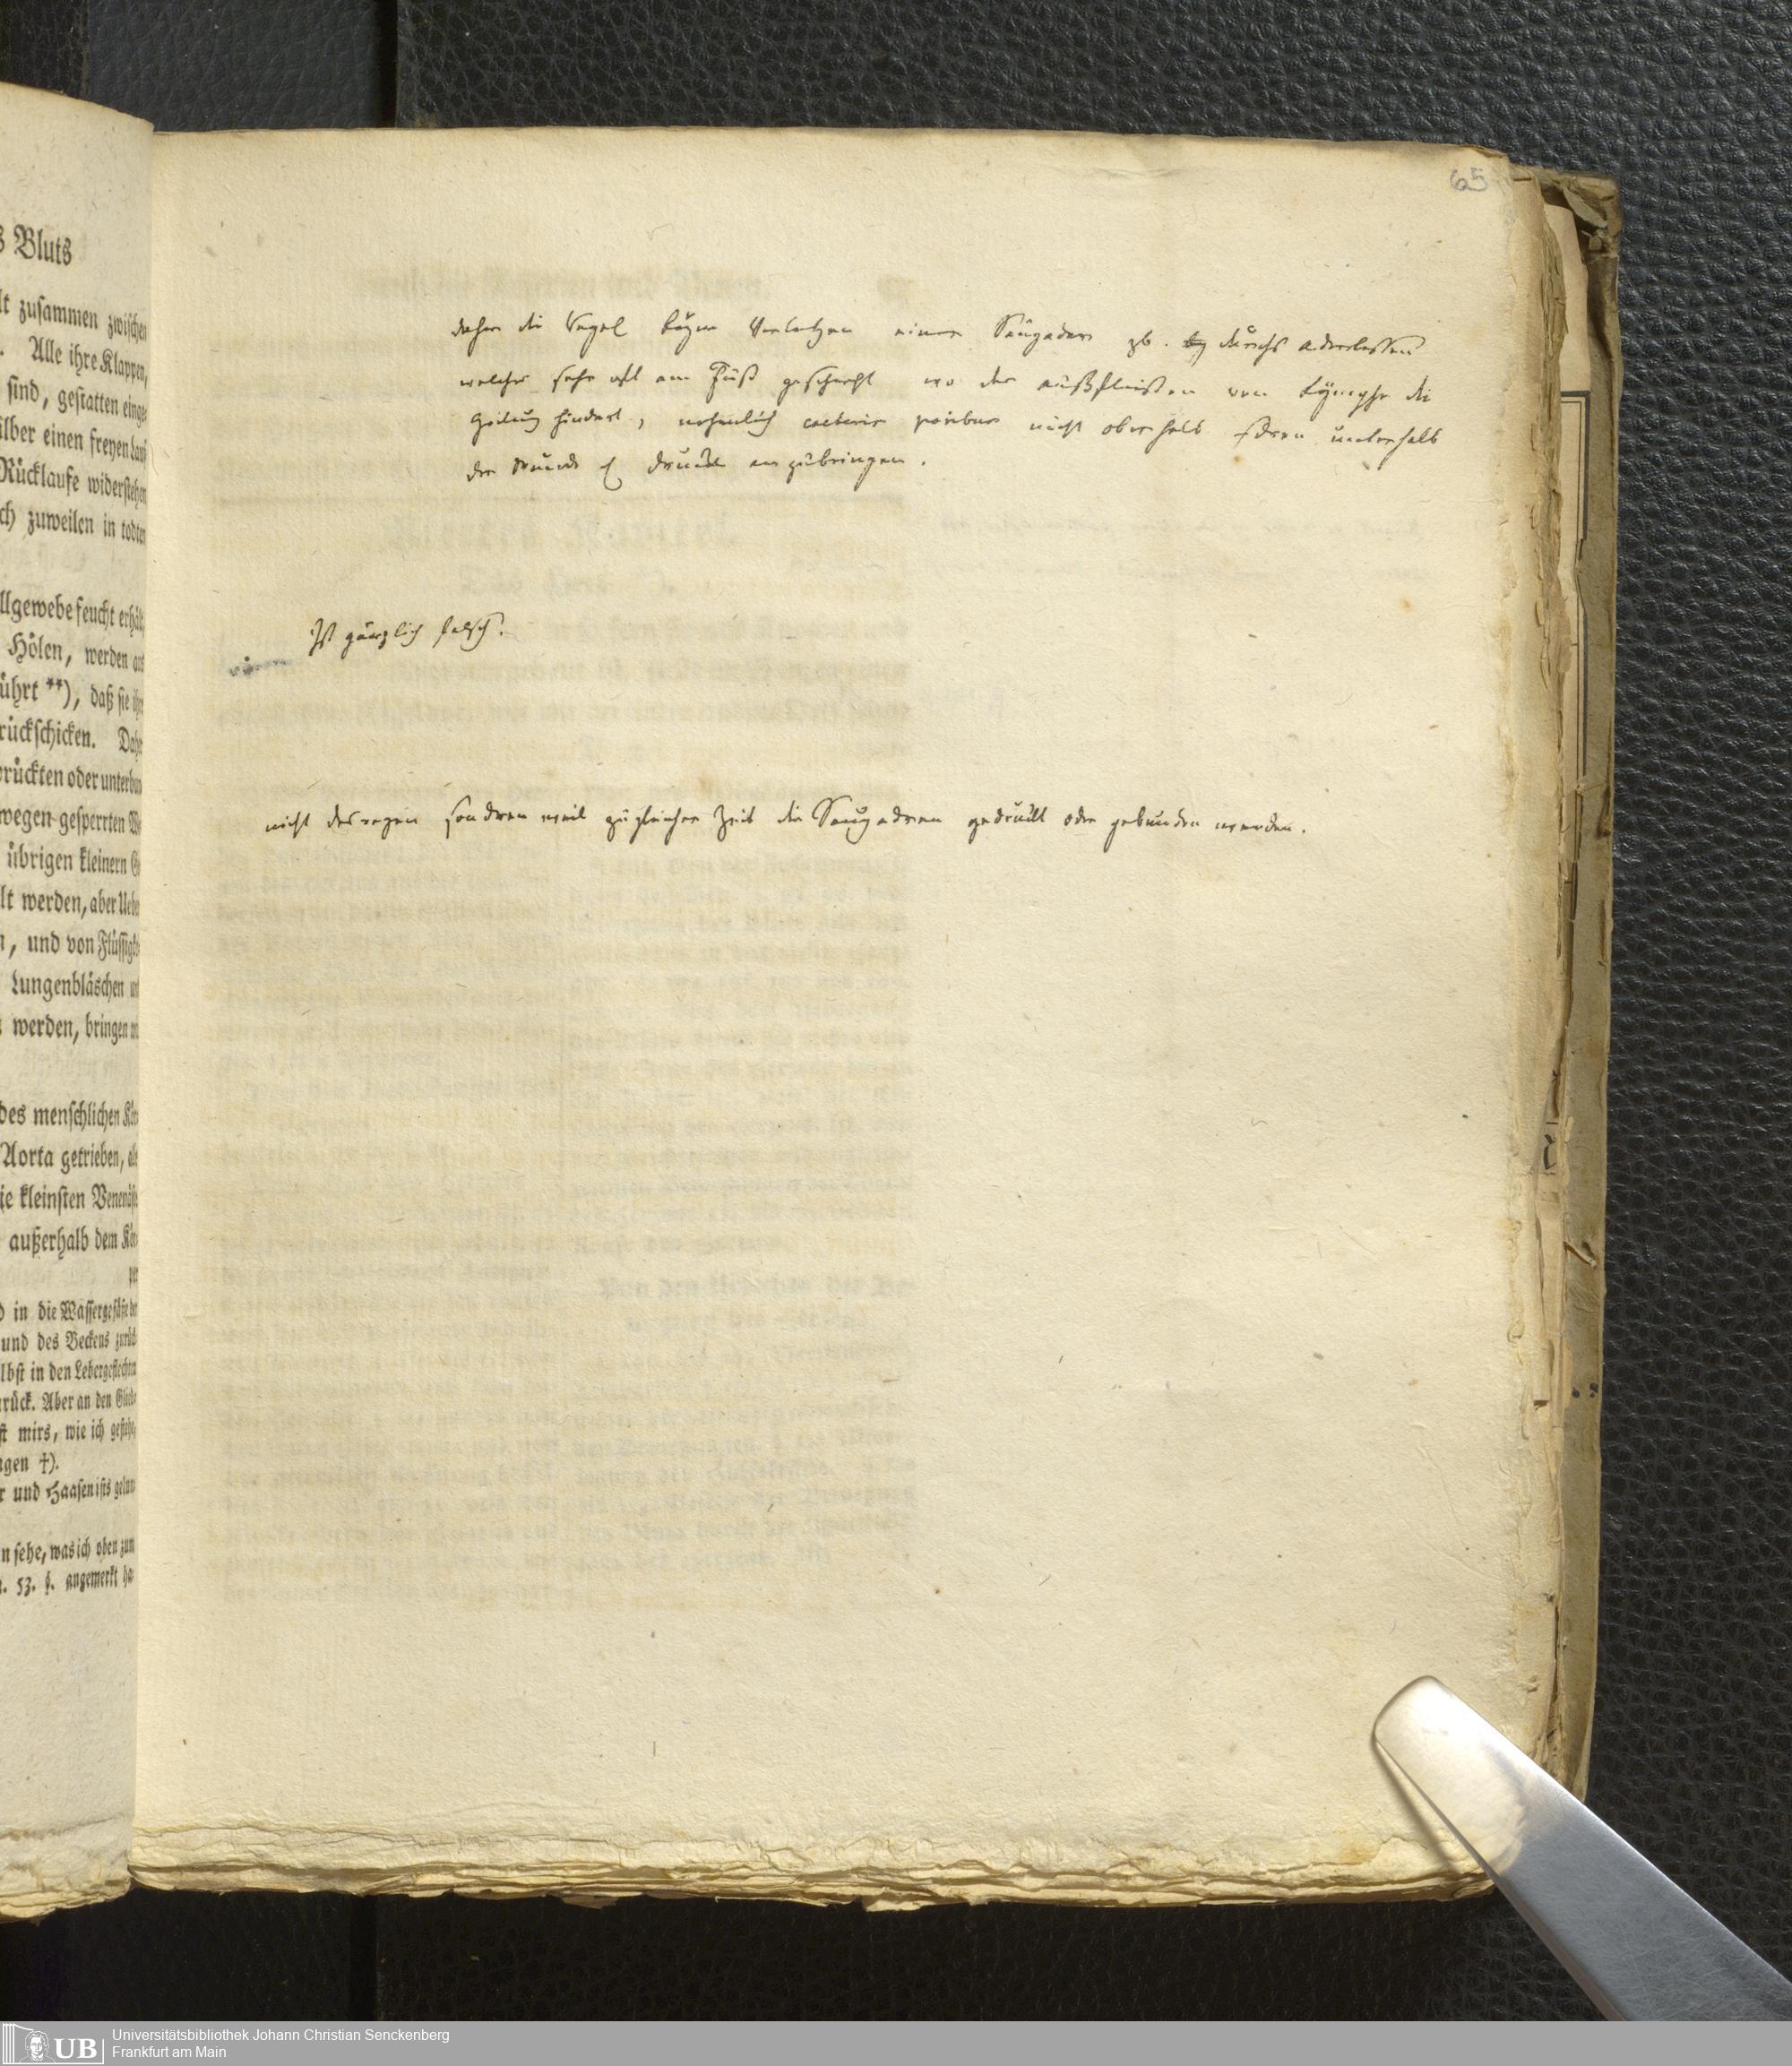 65
s Bluts
lt zusammen zwischen
. Alle ihre Klappen,
sind, gestatten einge
ilber einen freyen Lauf
Rücklaufe widerstehen
ch zuweilen in todten
llgewebe feucht erhält,
Hölen, werden aus
ührt **), daß sie ihr
rückschicken. Dahe
rückten oder unterbun
wegen gesperrten We
übrigen kleinern G
lt werden, aber Uebe
n, und von Flüssigke
Lungenbläschen un
werden, bringen
des menschlichen Kör
Aorta getrieben, al
ie kleinsten Venenäste
außerhalb dem Kör
per
d in die Wassergefäße der
und des Beckens zurück
lbst in den Lebergeflechten
rück. Aber an den Gliede
st mirs, wie ich gestehe,
ngen †).
r und Haasen ists gelun
n sehe, was ich oben zum
. 53. §. angemerkt ha
daher die Regel beym Verletzen einer Saugader zb. durchs aderlassen
welches sehr oft am Fuß geschieht wo das außfließen von Lymphe die
Heilung hindert, nehmlich caeteris paribus nicht oberhalb sdren unterhalb
der Wunde d Druck anzubringen.
Ist gänzlich falsch.
nicht deswegen sondren weil zu gleicher Zeit die Saugadren gedruckt oder gebunden werden.
UB
Universitätsbibliothek Johann Christian Senckenberg
Frankfurt am Main